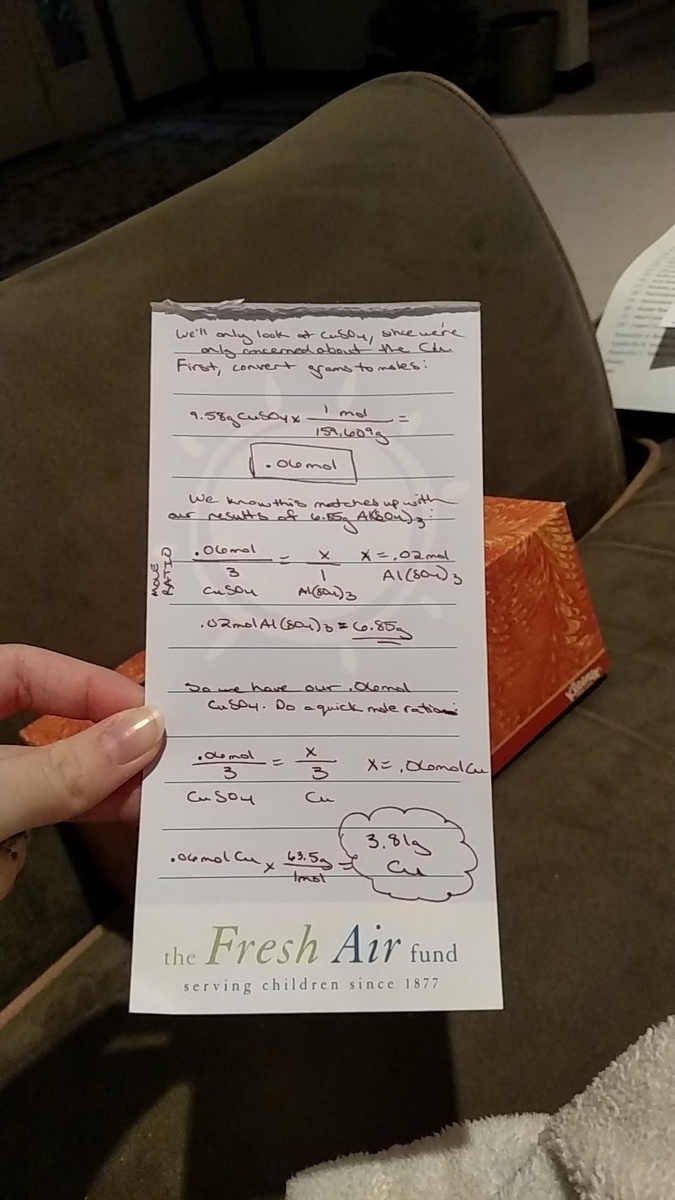 We'll only look at CuSO4, since we're
only concerned about the Cu.
First, convert grams to moles:
9.58g CuSO4 x 1 mol / 159.609g =
.06 mol
We know this matches up with
our results of 6.85g Al(SO4)3:
MOLE RATIO
.06mol / 3 = x / 1 x = .02mol
CuSO4 Al(SO4)3 Al(SO4)3
.02mol Al(SO4)3 = 6.85g
So we have our .06mol
CuSO4. Do a quick mole ratio:
.06mol / 3 = x / 3 x = .06mol Cu
CuSO4 Cu
.06mol Cu x 63.5g / 1mol = 3.81g Cu
the Fresh Air fund
serving children since 1877
Kleenex